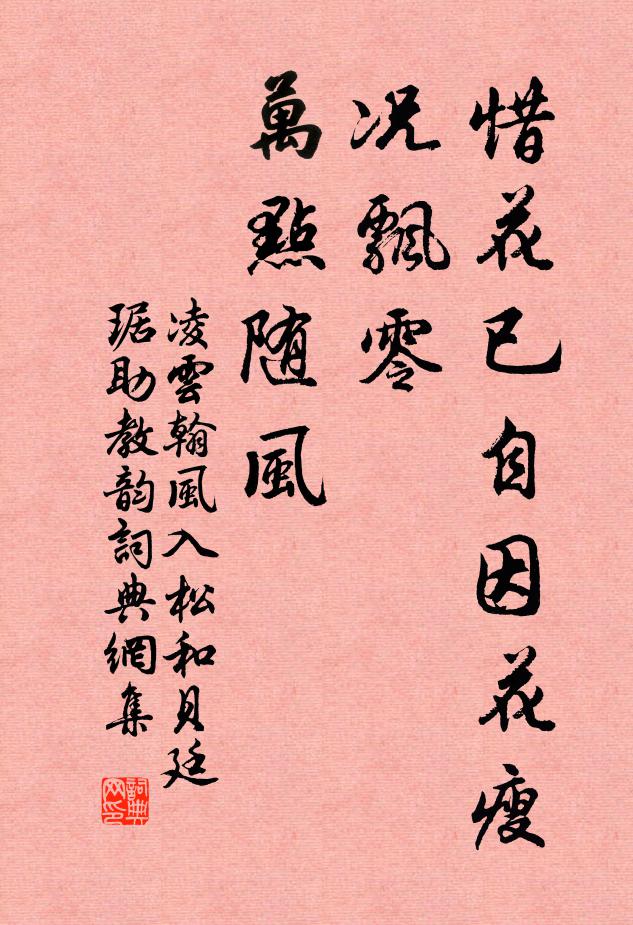 惜花已自因花瘦
況飄零
萬點随風
凌雲翰風入松和貝廷
琚助教韵詞典網集
詞典
网印